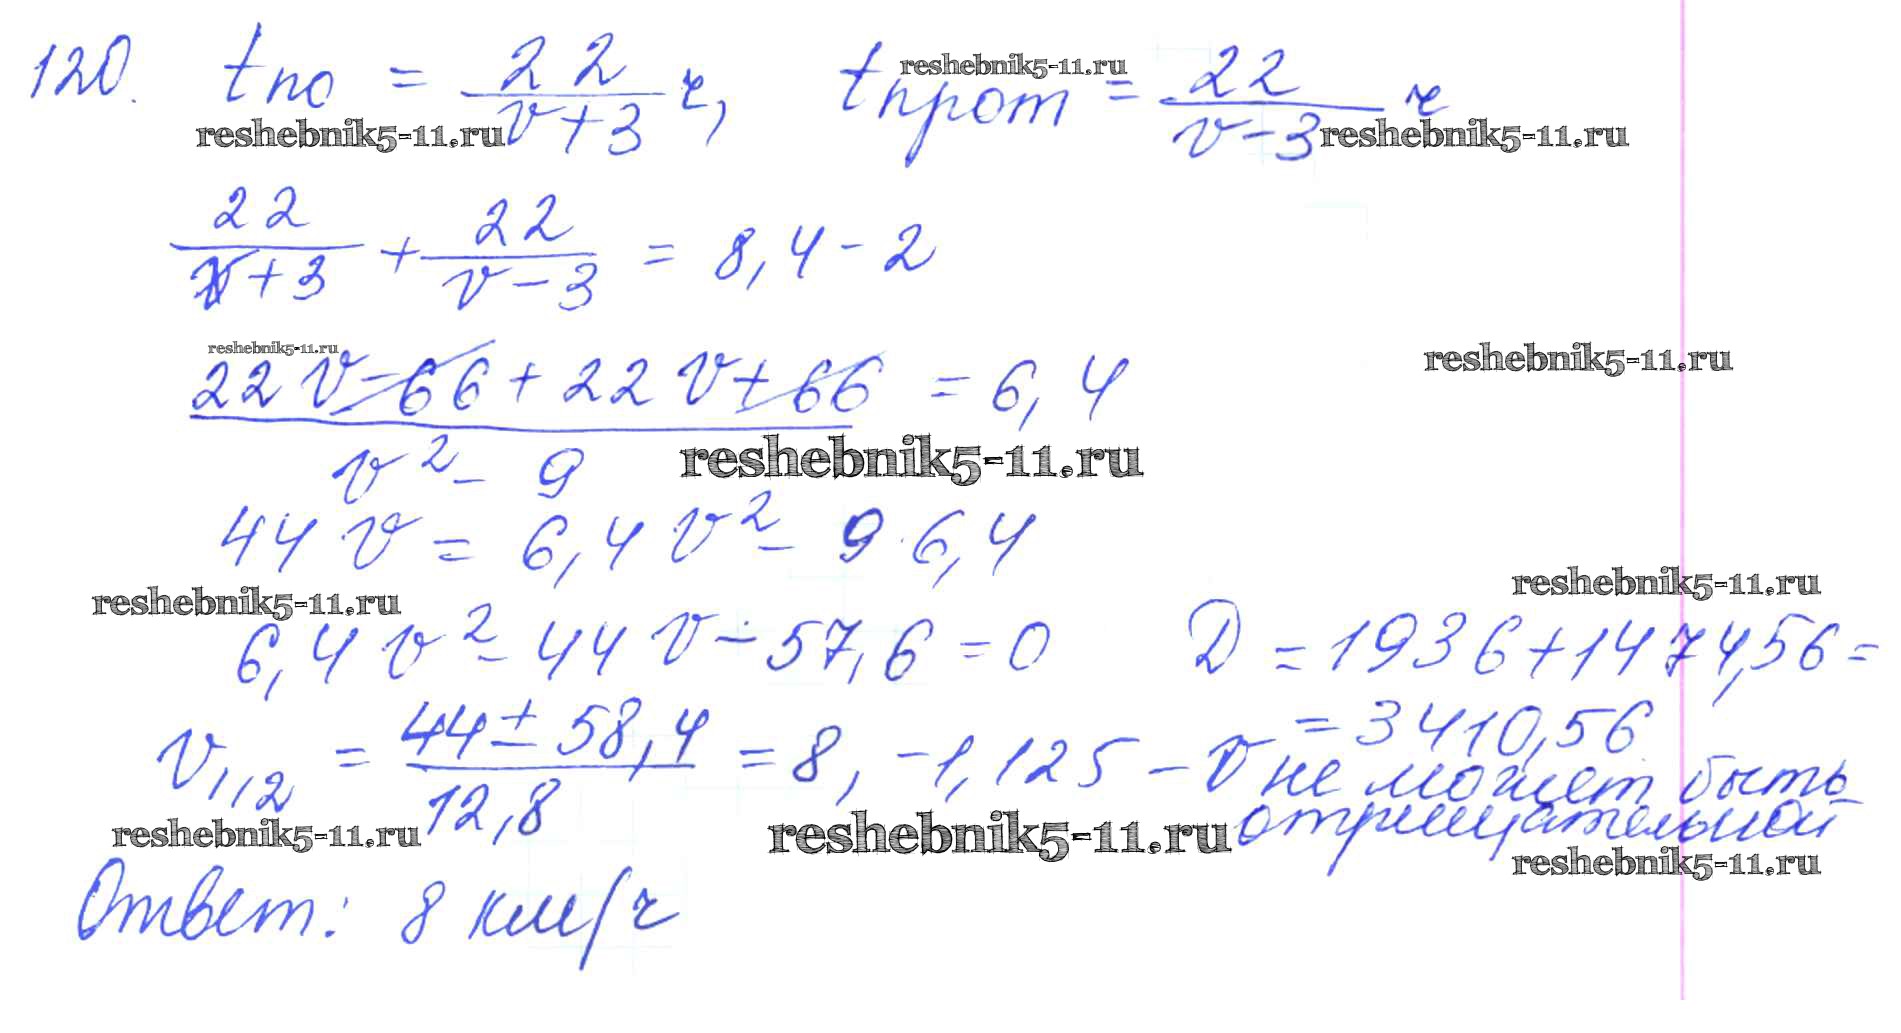 120. tпо = 22/(v+3) ч, tпрот = 22/(v-3) ч
reshebnik5-11.ru
reshebnik5-11.ru
reshebnik5-11.ru
22/(v+3) + 22/(v-3) = 8,4 - 2
reshebnik5-11.ru
reshebnik5-11.ru
(22v - 66 + 22v + 66)/(v² - 9) = 6,4
reshebnik5-11.ru
44v = 6,4v² - 9·6,4
reshebnik5-11.ru
reshebnik5-11.ru
6,4v² - 44v - 57,6 = 0 D = 1936 + 1474,56 =
= 3410,56
v1,2 = (44 ± 58,4)/12,8 = 8, -1,125 - v не может быть
отрицательной
reshebnik5-11.ru
reshebnik5-11.ru
reshebnik5-11.ru
Ответ: 8 км/ч